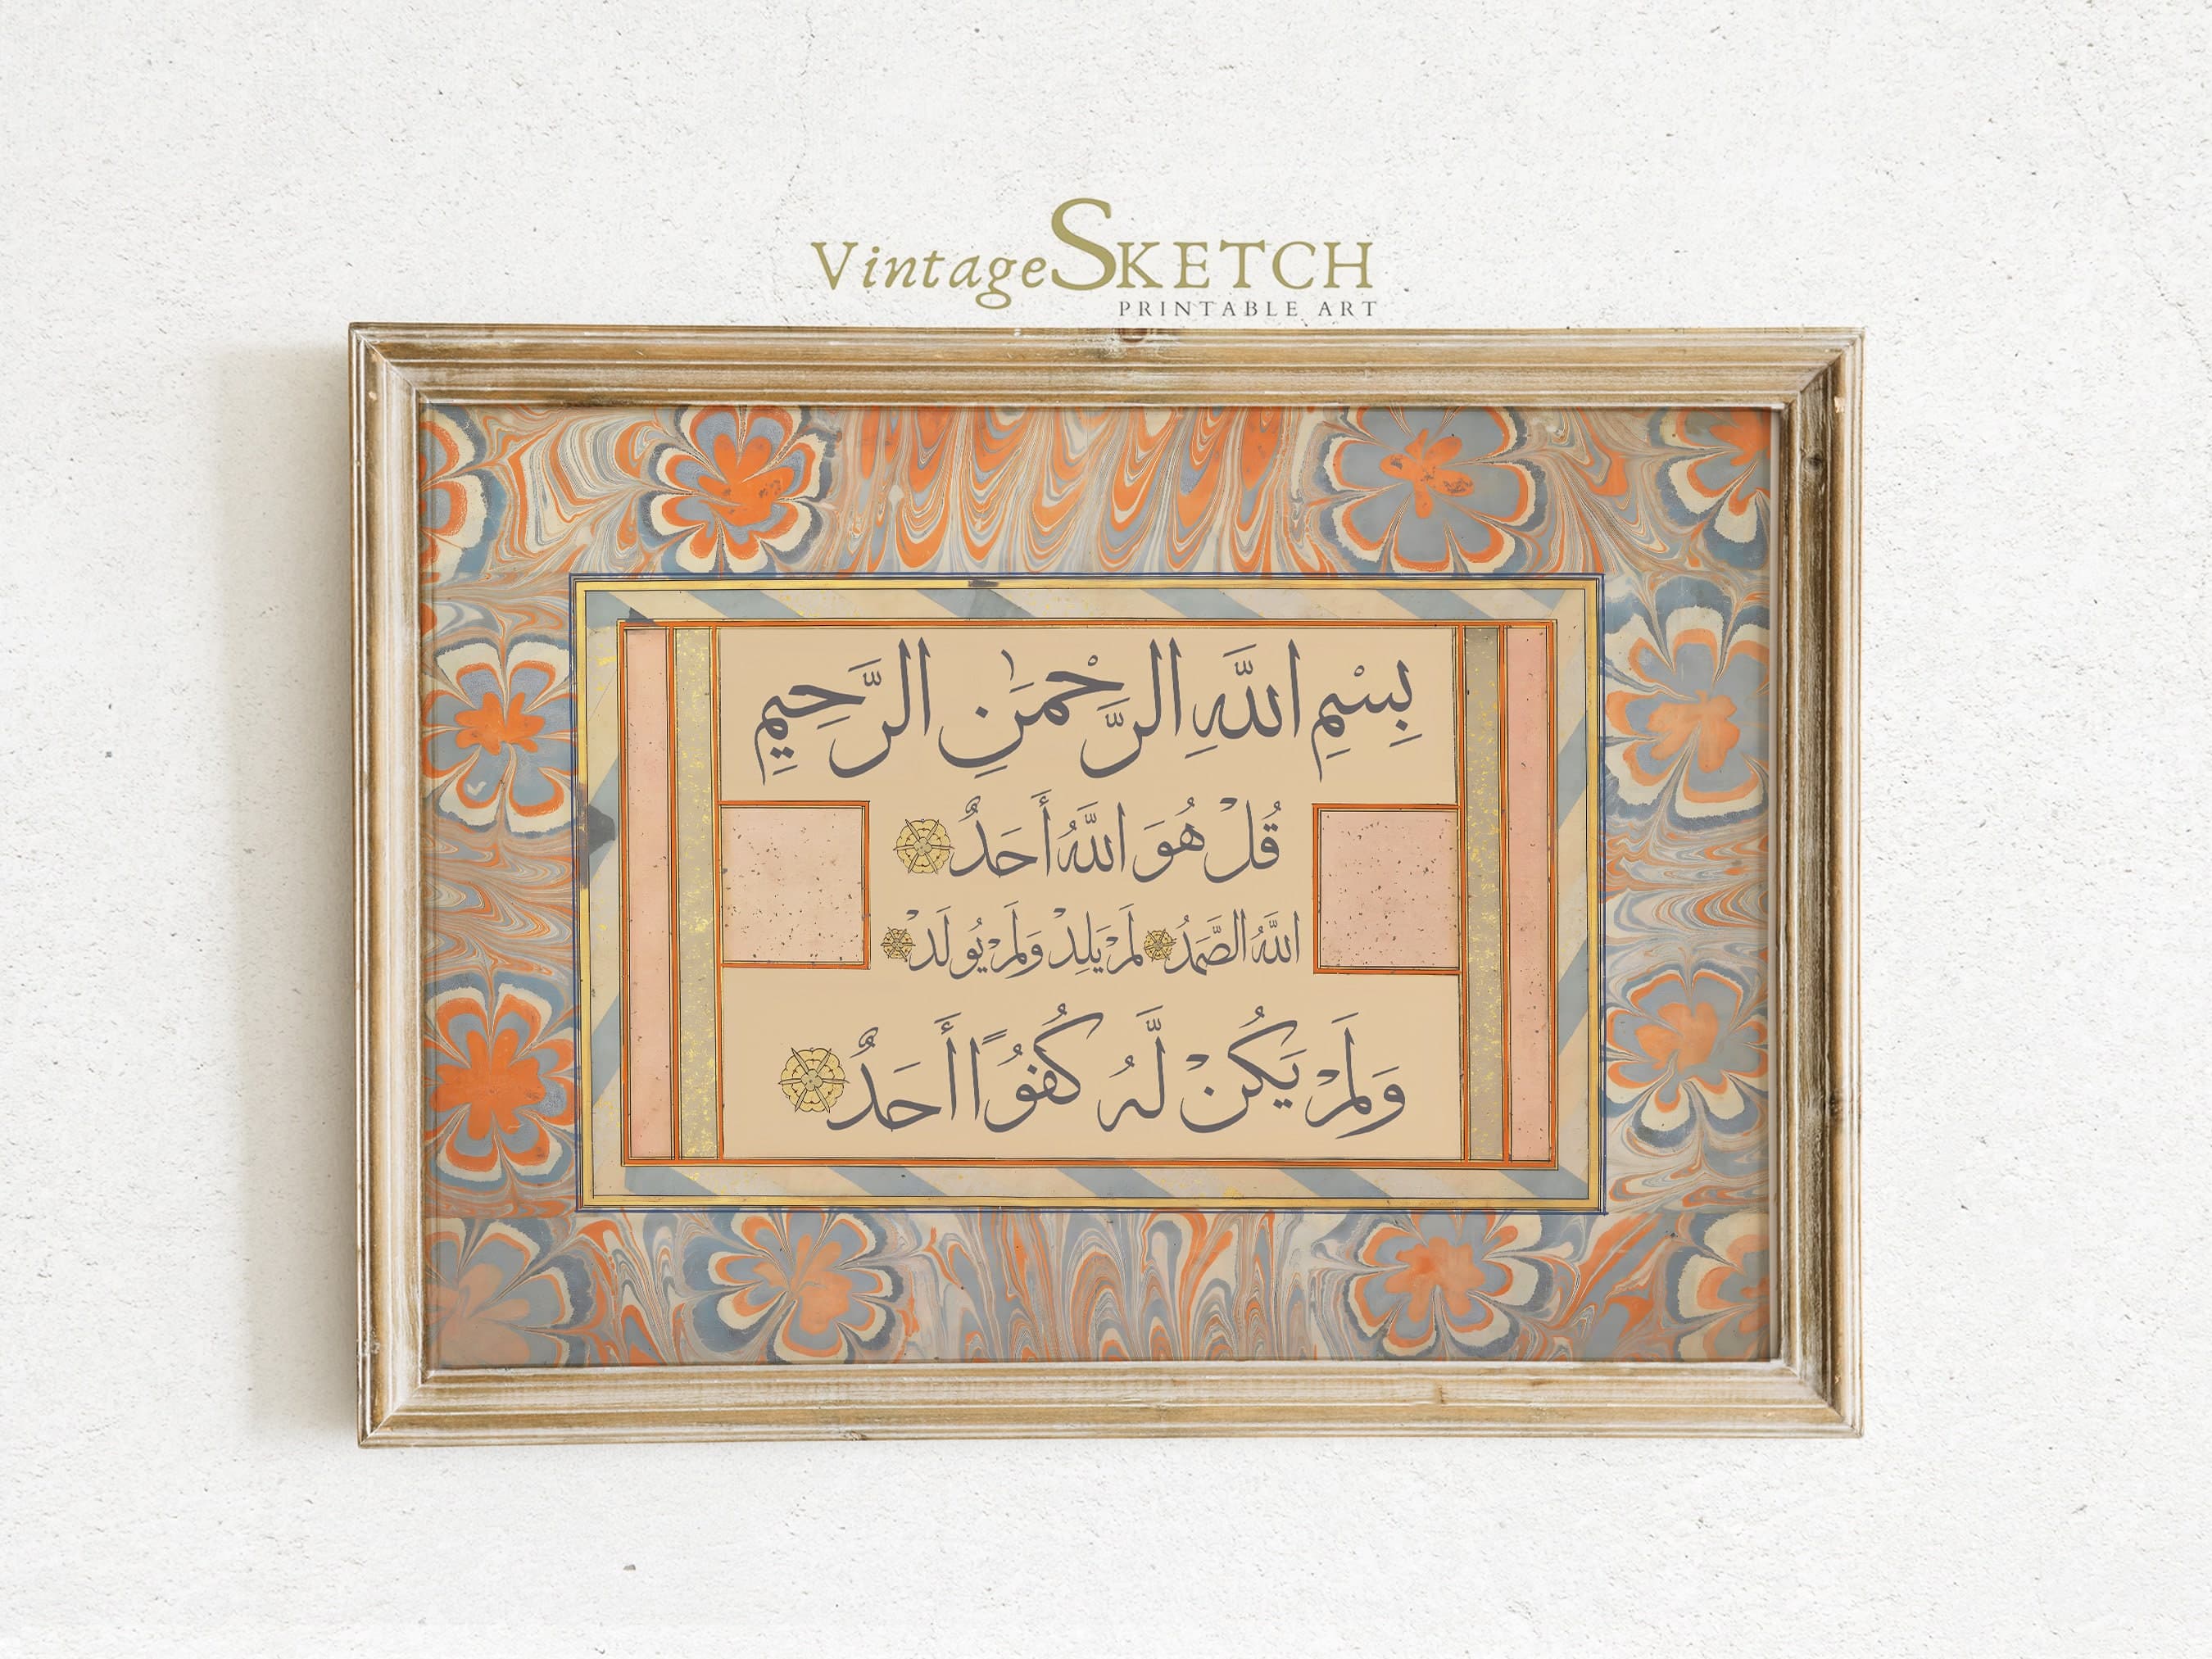 VintageSKETCH
PRINTABLE ART
بِسْمِ اللَّهِ الرَّحْمَٰنِ الرَّحِيمِ
قُلْ هُوَ اللَّهُ أَحَدٌ
اللَّهُ الصَّمَدُ لَمْ يَلِدْ وَلَمْ يُولَدْ
وَلَمْ يَكُنْ لَّهُ كُفُوًا أَحَدٌ